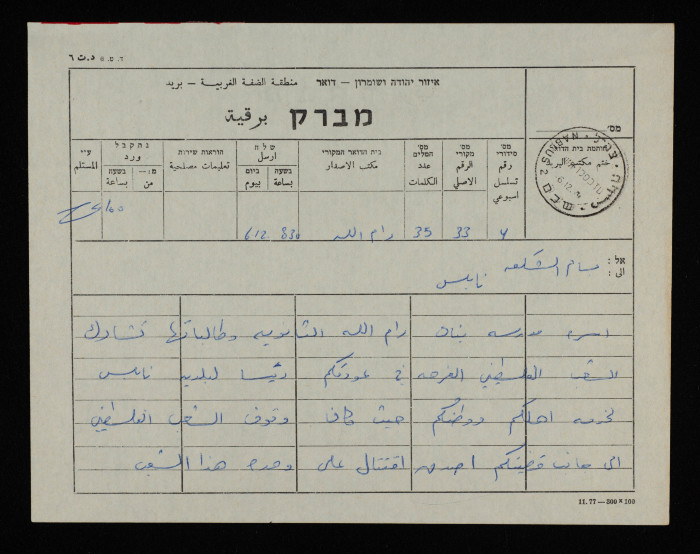 ד.ט. 6 د.ت ٦
איזור יהודה ושומרון – דואר منطقة الضفة الغربية – بريد
מברק برقية
מס׳
חותמת בית הדואר
ختم مكتب البريد
NABLUS 2
ע״י
المستلم
נתקבל
ورد
מ:
من
בשעה
بساعة
הוראות שירות
تعليمات مصلحية
שלח
ارسل
ביום
بيوم
בשעה
بساعة
בית הדואר המקורי
مكتب الاصدار
מס׳ המלים
عدد الكلمات
מס׳ מקורי
الرقم الاصلي
מס׳ סידורי
رقم تسلسل اسبوعي
6/12 830 رام الله 35 33 4
אל :
الى :
بسام الشكعه
نابلس
اسره مدرسه بنات رام الله الثانويه وطالباتها تشارك
الشعب الفلسطيني الفرحه في عودتكم رئيسا لبلديه نابلس
لخدمه اهلكم ووطنكم حيث كان وقوف الشعب الفلسطيني
الى جانب قضيتكم اصدق على وحده هذا الشعب
11.77 – 200 × 100